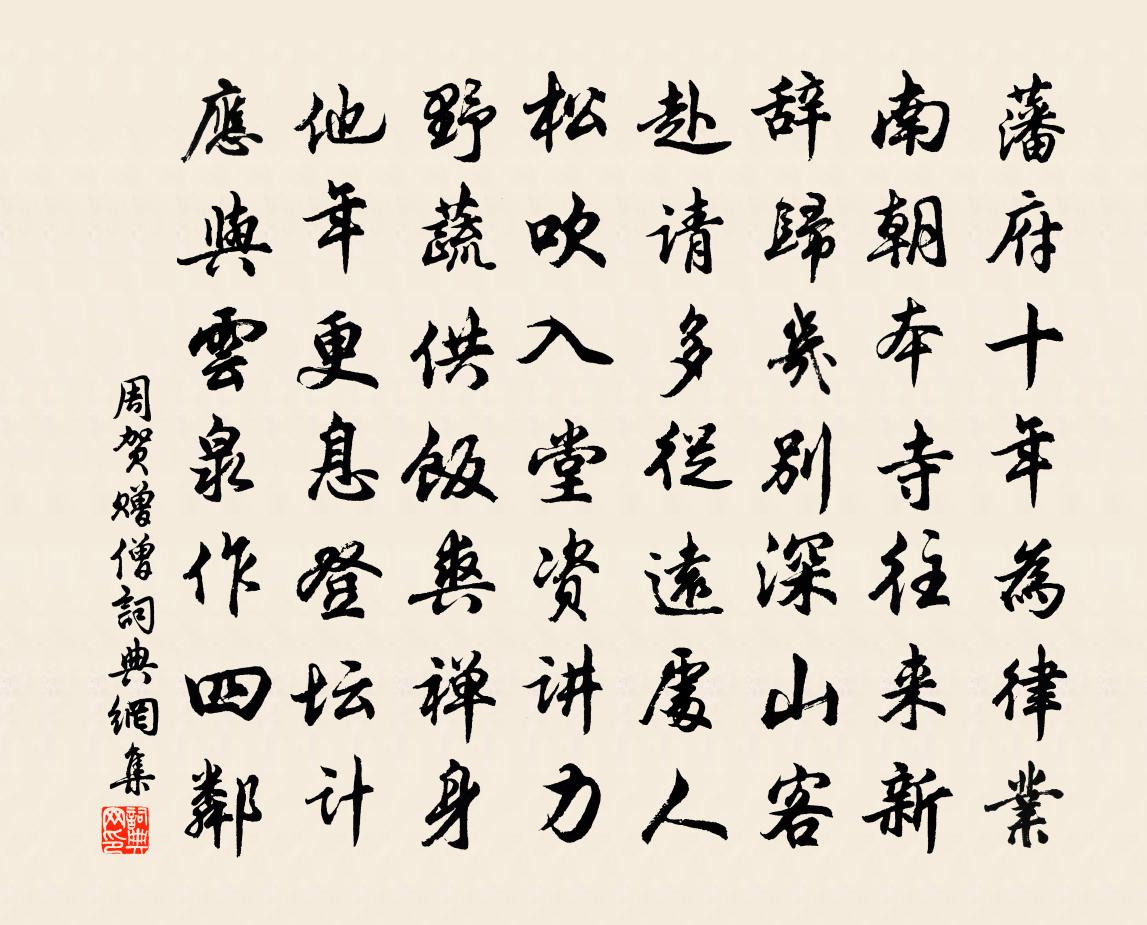 藩府十年為律業
南朝本寺往来新
辞歸幾別深山客
赴请多從遠處人
松吹入堂资讲力
野蔬供飯爽禅身
他年更息登坛计
應與雲泉作四鄰
周贺赠僧詞典網集
詞典网印